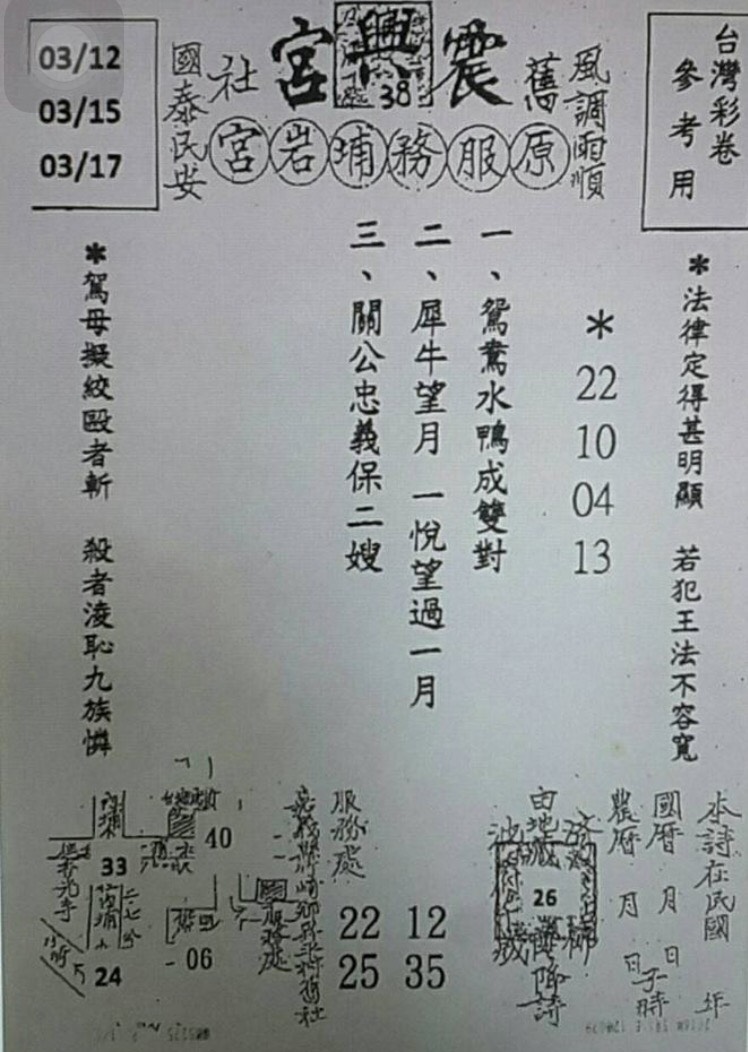 台灣彩卷
參考用
風調雨順
舊
震興宮
38
社
國泰民安
原服務埔岩宮
03/12
03/15
03/17
*法律定得甚明顯 若犯王法不容寬
*
22
10
04
13
一、鴛鴦水鴨成雙對
二、犀牛望月 一悅望過一月
三、關公忠義保二嫂
*駕母擬絞毆者斬 殺者淩恥九族憐
本詩在民國 年
國曆 月 日
農曆 月 日
子時
26
降詩
12
35
服務處
22
25
40
33
06
24
服務處